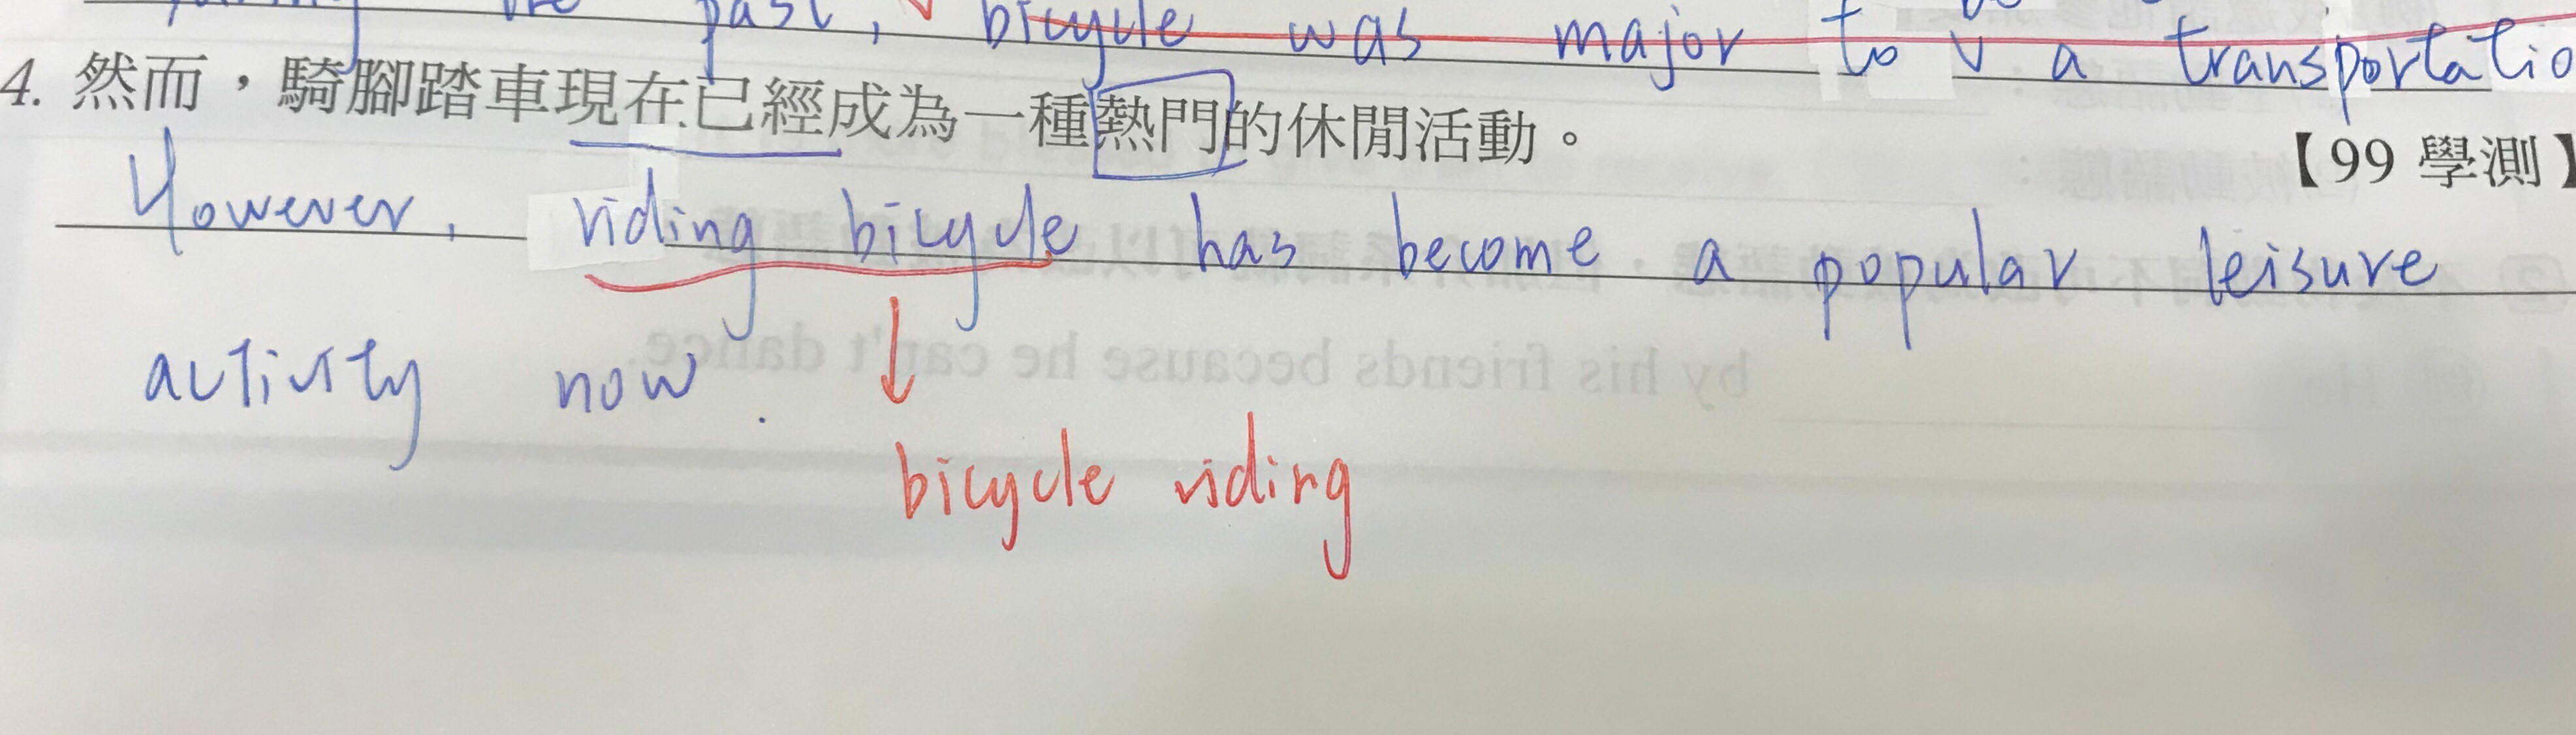 past, bicycle was major to a transportatio
4. 然而，騎腳踏車現在已經成為一種熱門的休閒活動。
【99 學測】
However, riding bicycle has become a popular leisure
activity now.
bicycle riding
by his friends because he can't dance.